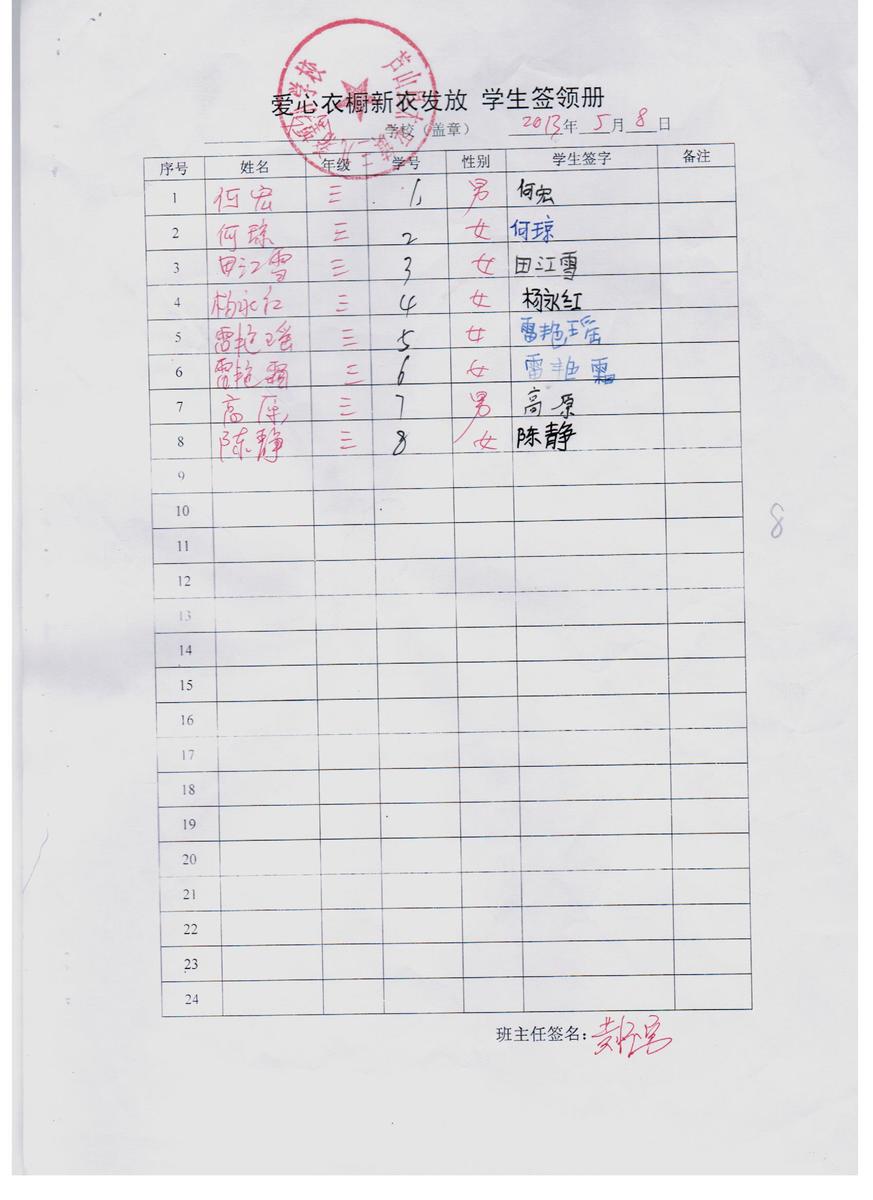 爱心衣橱新衣发放 学生签领册
学校（盖章） 2013年 5月 8日
序号 姓名 年级 学号 性别 学生签字 备注
1 何宏 三 1 男 何宏
2 何琼 三 2 女 何琼
3 田江雪 三 3 女 田江雪
4 杨永红 三 4 女 杨永红
5 雷艳瑶 三 5 女 雷艳瑶
6 雷艳霜 三 6 女 雷艳霜
7 高原 三 7 男 高原
8 陈静 三 8 女 陈静
9
10
8
11
12
13
14
15
16
17
18
19
20
21
22
23
24
班主任签名：